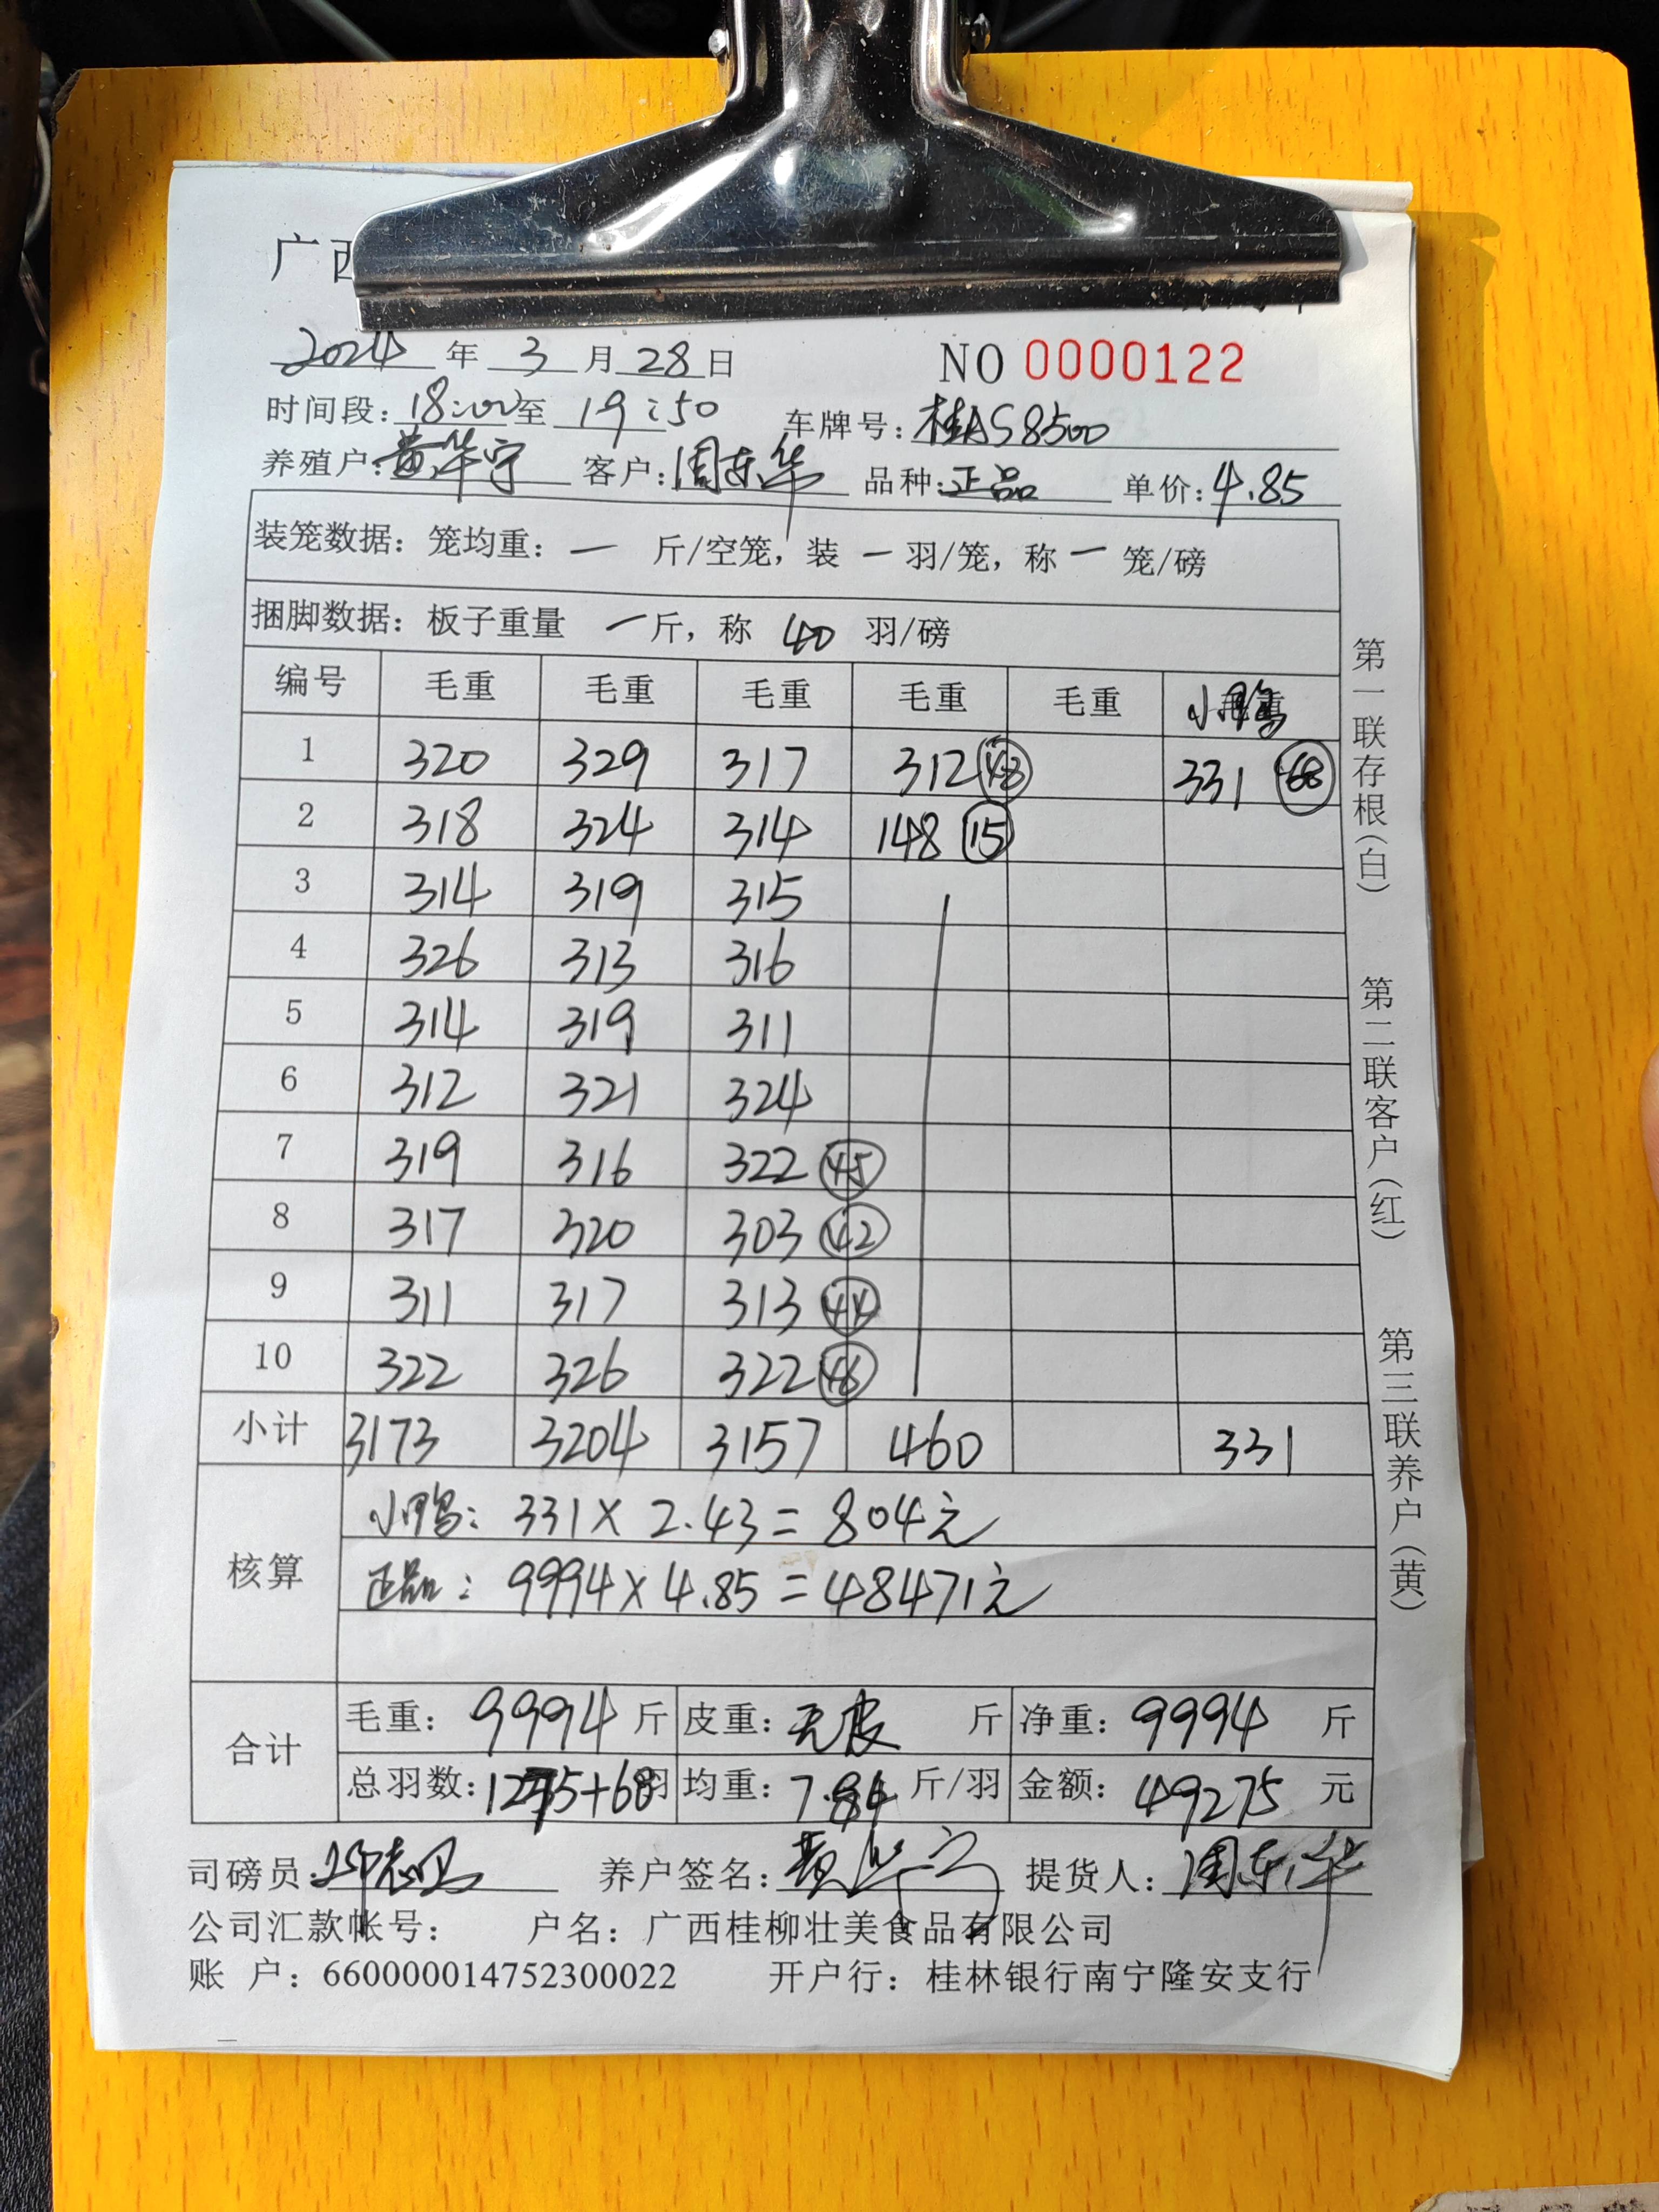 广西
2024 年 3 月 28 日 NO 0000122
时间段: 18:00 至 19:50 车牌号: 桂AS8500
养殖户: 黄华宁 客户: 周东华 品种: 正品 单价: 4.85
装笼数据: 笼均重: 一 斤/空笼, 装 一 羽/笼, 称 一 笼/磅
捆脚数据: 板子重量 一 斤, 称 40 羽/磅
编号 毛重 毛重 毛重 毛重 毛重 小鸭
1 320 329 317 312 43 331 68
2 318 324 314 148 15
3 314 319 315
4 326 313 316
5 314 319 311
6 312 321 324
7 319 316 322 45
8 317 320 303 42
9 311 317 313 44
10 322 326 322 46
小计 3173 3204 3157 460 331
核算
小鸭: 331 × 2.43 = 804元
正品: 9994 × 4.85 = 48471元
合计
毛重: 9994 斤 皮重: 无皮 斤 净重: 9994 斤
总羽数: 1275+68 羽 均重: 7.84 斤/羽 金额: 49275 元
司磅员: 养户签名: 黄华宁 提货人: 周东华
公司汇款帐号: 户名: 广西桂柳壮美食品有限公司
账 户: 660000014752300022 开户行: 桂林银行南宁隆安支行
第一联存根(白)
第二联客户(红)
第三联养户(黄)